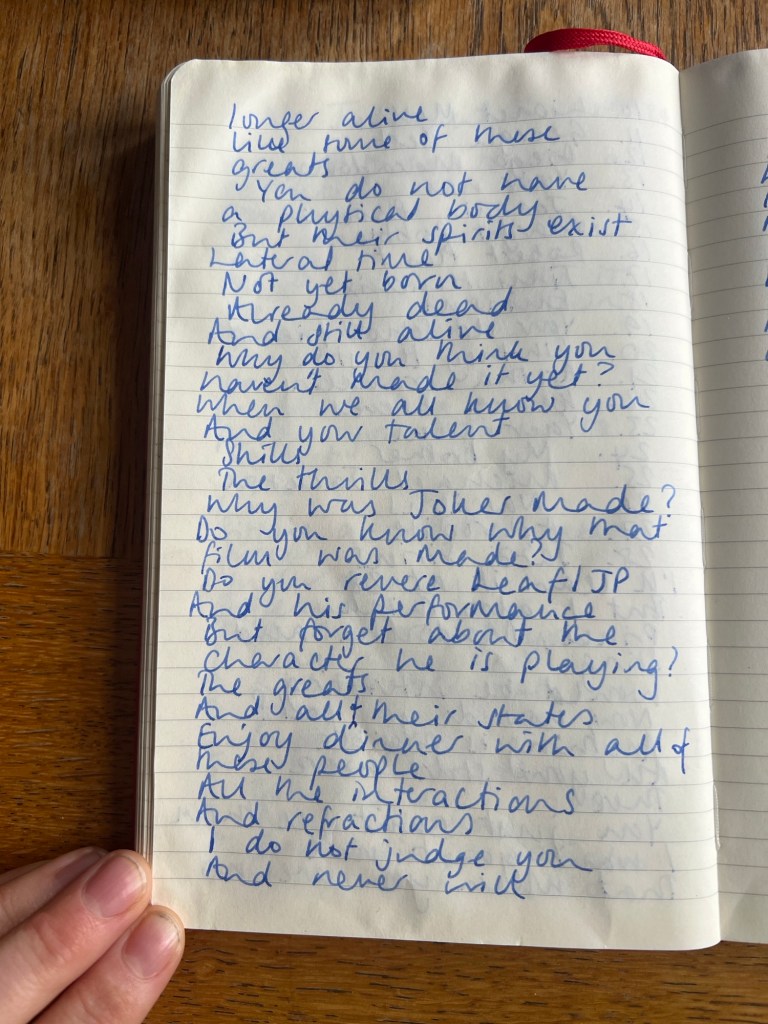 longer alive
like some of these
greats
You do not have
a physical body
But their spirits exist
Lateral time
Not yet born
Already dead
And still alive
Why do you think you
haven't made it yet?
When we all know you
And your talent
Skills
The thrills
Why was Joker made?
Do you know why that
film was made?
Do you revere Leaf/JP
And his performance
But forget about the
character he is playing?
The greats
And all their states
Enjoy dinner with all of
these people
All the interactions
And refractions
I do not judge you
And never will